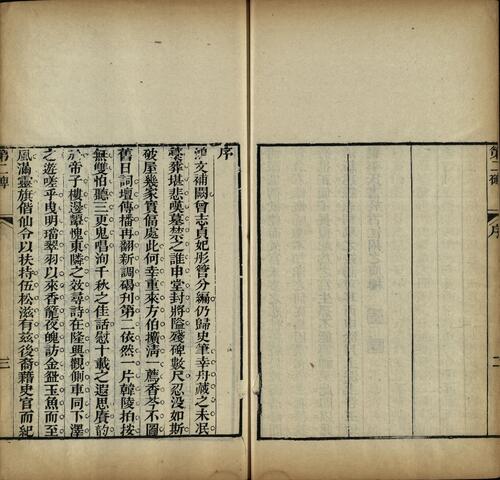 序
鴻文補闕曾志貞妃彤管分編仍歸史筆幸丹藏之未泯
葬堪悲嘆墓禁之誰申堂封將隘殘碑數尺忍没如斯
破屋幾家實偪處此何幸重來方伯擴清一薦香岑不圖
舊日詞壇傳播再翻新調磡刊第二依然一片韓陵拍按
無雙怕聽三更鬼唱洵千秋之佳話慰十載之遐思賡韵
於帝子樓邊顰愧東隣之效尋詩在隆興觀側車同下澤
之遊嗟乎曳明璫翠羽以來香籠夜魄訪金鈿玉魚而至
風滿靈旗偕仙令以扶持伍松滋有兹後裔藉史官而紀
第二碑
三
第二碑
序
二